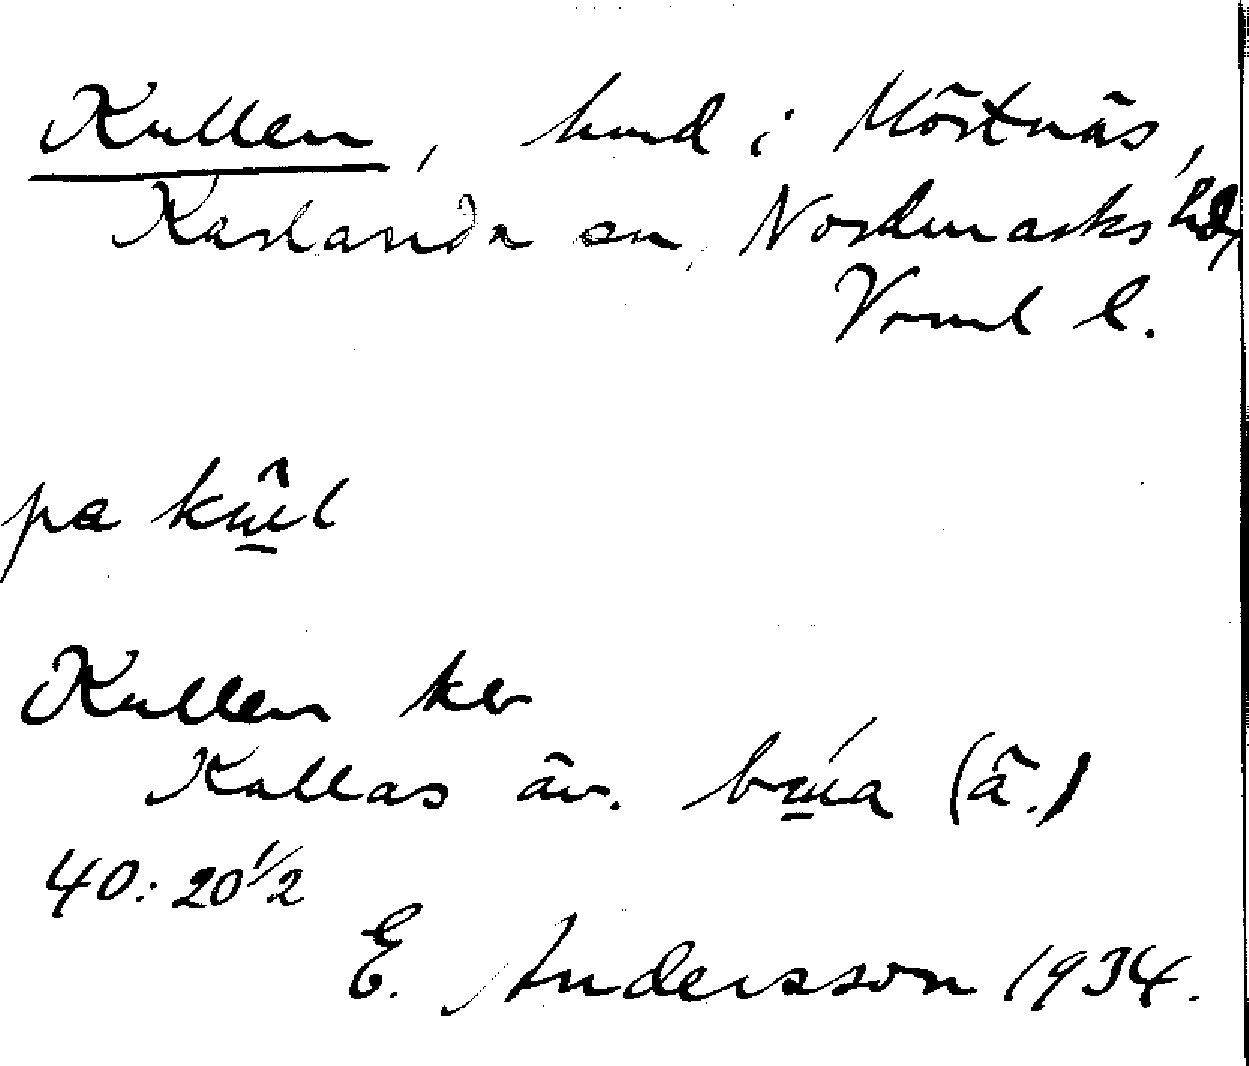 Kullen, hmd i Mörtnäs,
Karlanda sn, Nordmarks hd,
Vrml l.
pa
Kullen ker
Kallas äv. (ä.)
40:20 1/2
E. Andersson 1934.